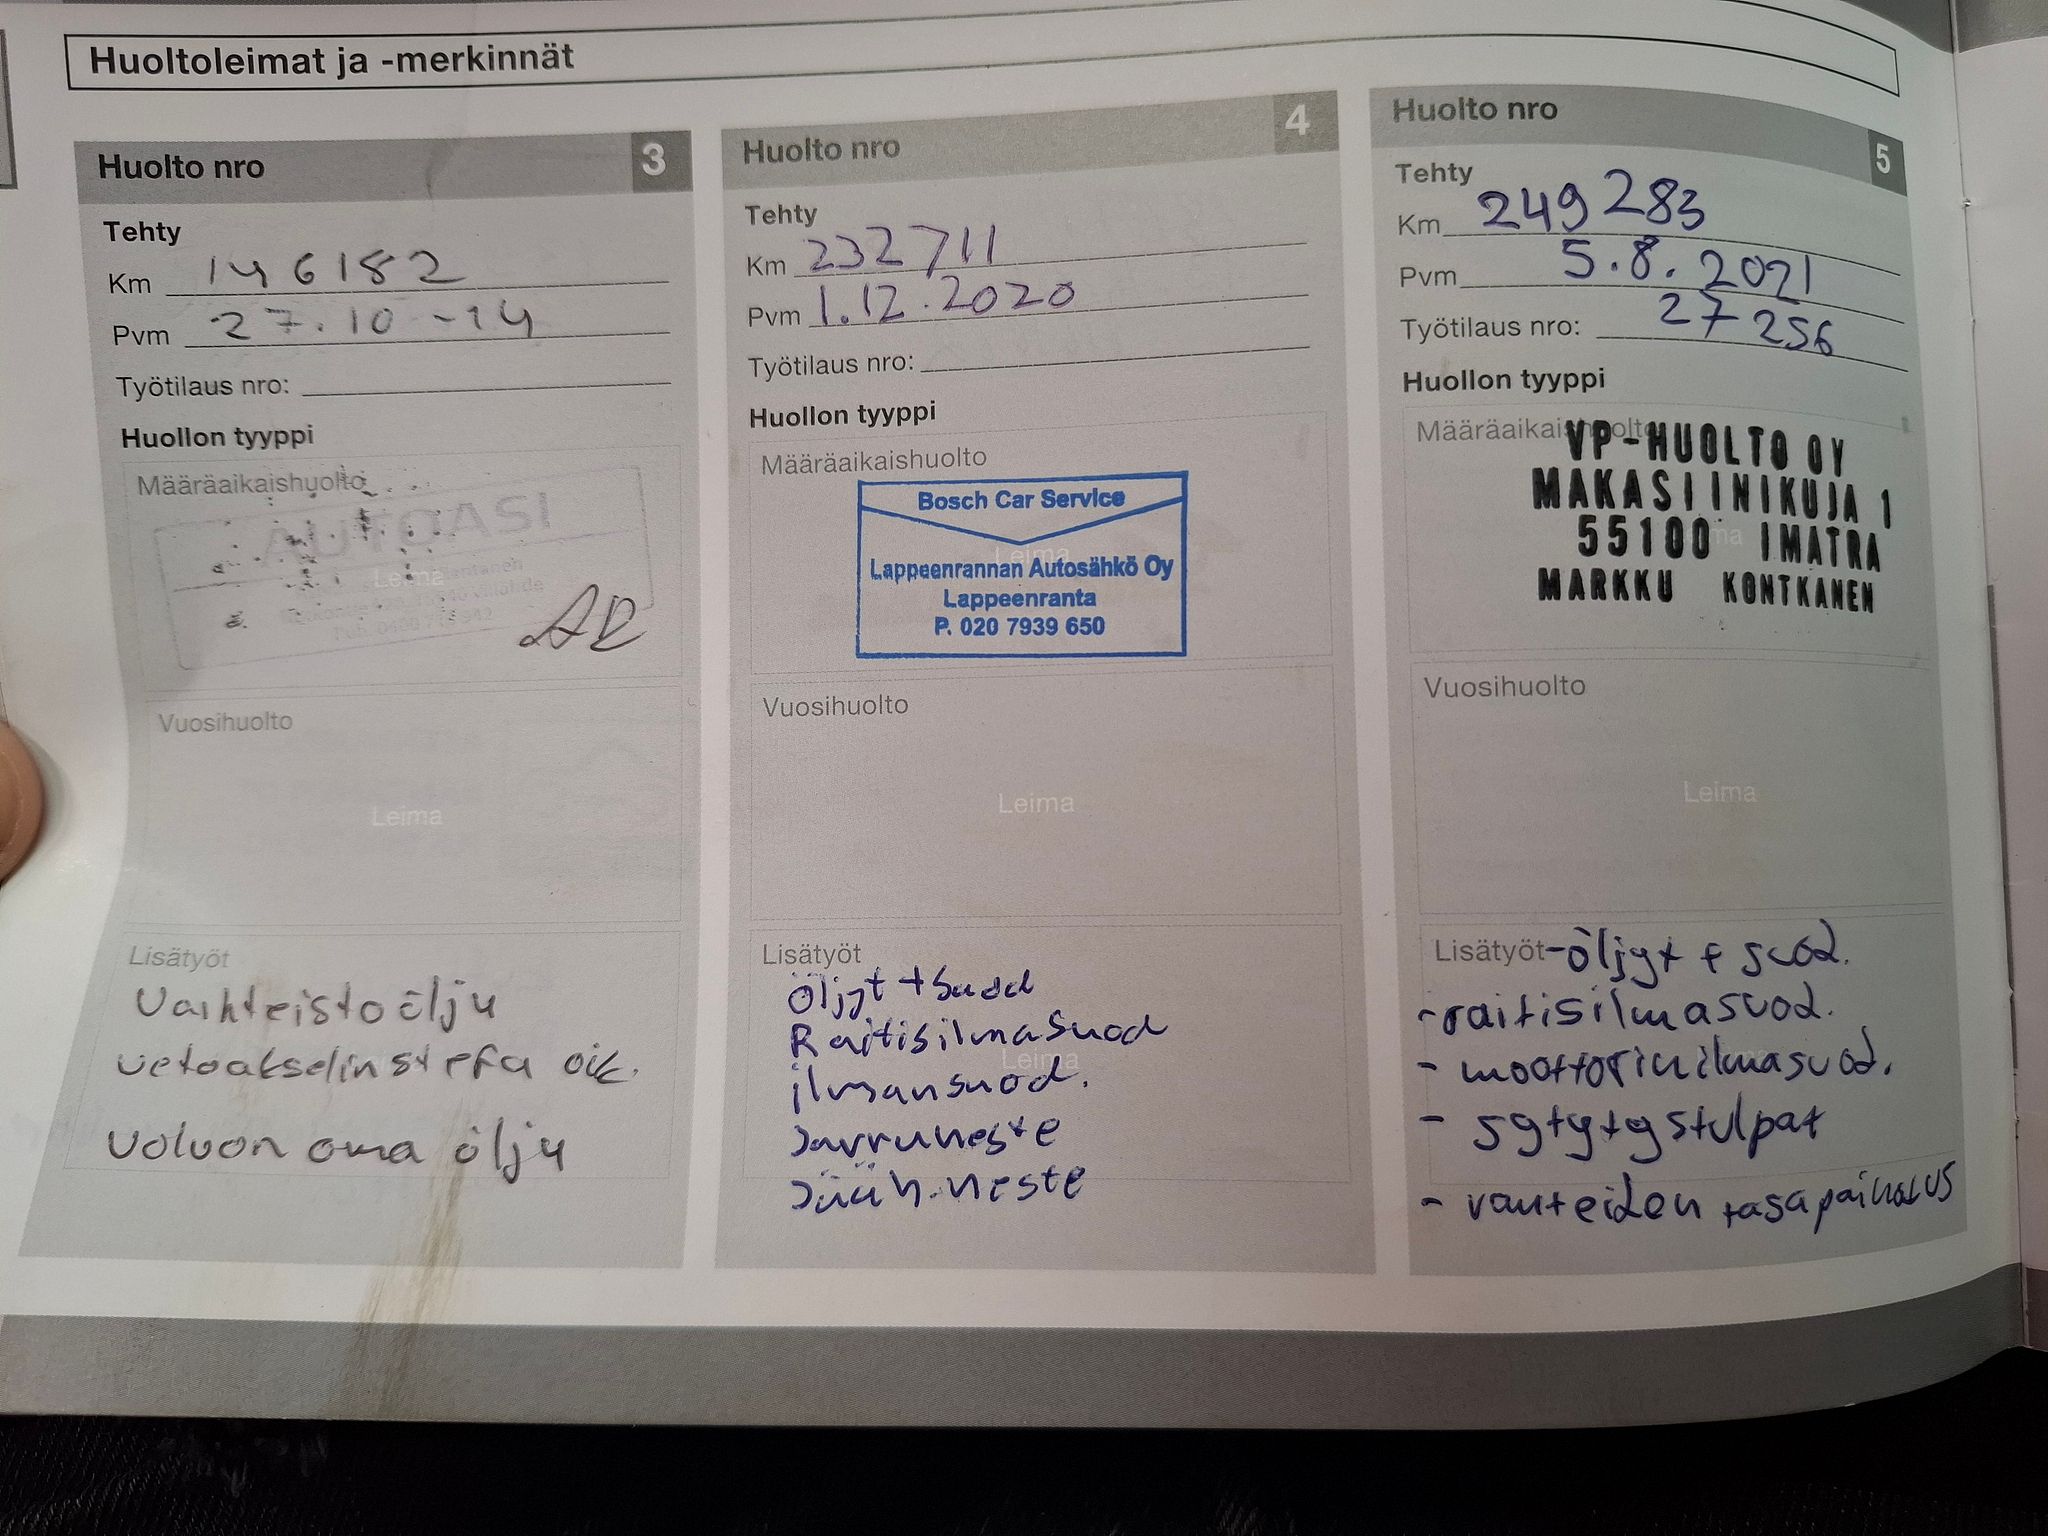 Huoltoleimat ja -merkinnät
Huolto nro 3
Tehty
Km 146182
Pvm 27.10-14
Työtilaus nro:
Huollon tyyppi
Määräaikaishuolto
AUTOASI
Leima
Vuosihuolto
Leima
Lisätyöt
Vaihteistoölju
vetoakselinstefa oik.
volvon oma ölju
Huolto nro 4
Tehty
Km 232711
Pvm 1.12.2020
Työtilaus nro:
Huollon tyyppi
Määräaikaishuolto
Bosch Car Service
Leima
Lappeenrannan Autosähkö Oy
Lappeenranta
P. 020 7939 650
Vuosihuolto
Leima
Lisätyöt
Öljyt + Suod
Raitisilmasuod
Leima
ilmansuod.
Jarruneste
Jääh.neste
Huolto nro 5
Tehty
Km 249283
Pvm 5.8.2021
Työtilaus nro: 27256
Huollon tyyppi
Määräaikaishuolto
VP-HUOLTO OY
MAKASIINIKUJA 1
55100 IMATRA
MARKKU KONTKANEN
Vuosihuolto
Leima
Lisätyöt -öljyt + suod.
-raitisilmasuod.
- moottorinilmasuod.
- sytytystulpat
- vanteiden tasapainotus